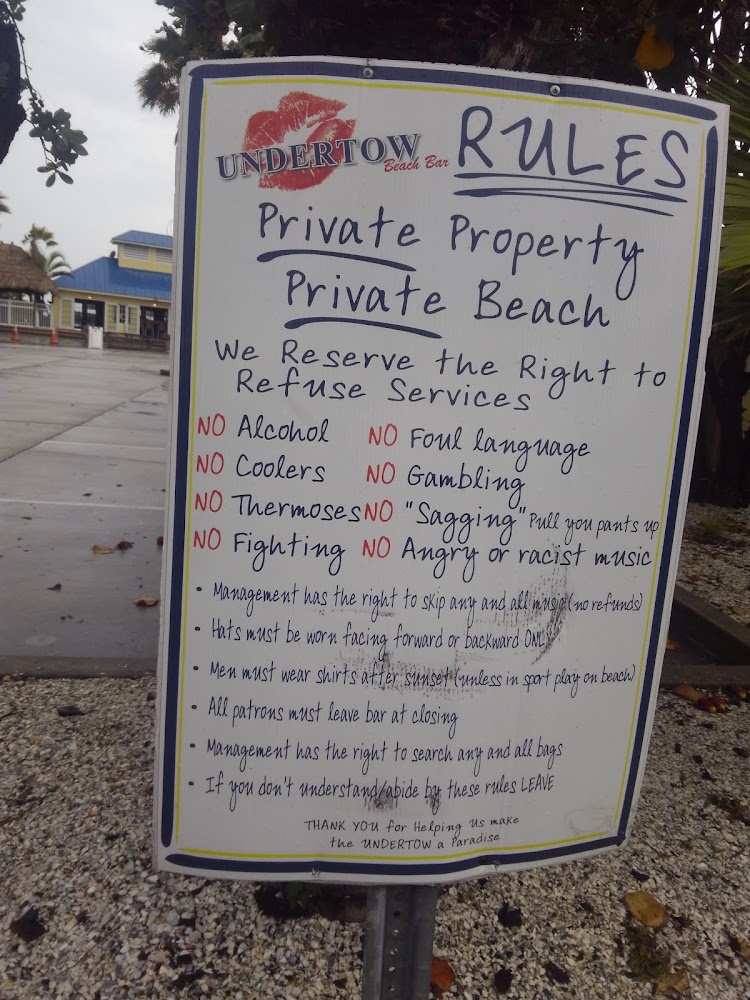 UNDERTOW
Beach Bar
RULES
Private Property
Private Beach
We Reserve the Right to
Refuse Services
NO Alcohol
NO Foul language
NO Coolers
NO Gambling
NO Thermoses
NO "Sagging" Pull you pants up
NO Fighting
NO Angry or racist music
• Management has the right to skip any and all music (no refunds)
• Hats must be worn facing forward or backward ONLY
• Men must wear shirts after sunset (unless in sport play on beach)
• All patrons must leave bar at closing
• Management has the right to search any and all bags
• If you don't understand/abide by these rules LEAVE
THANK YOU for Helping Us make
the UNDERTOW a Paradise